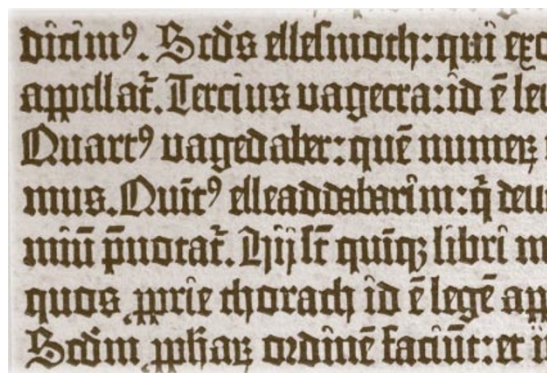 dicimꝰ. Scd̄s ellesmoth: qui exo
appellat᷑. Tercius uagecra: id ē leu
Quartꝰ uagedaber: quē numeꝝ
mus. Quītꝰ elleaddabarim: q̄ deu
miū p̄notat᷑. Hij st̄ quīqꝫ libri m
quos ꝓprie thorath id ē legē app
Scd̄m ꝓphaꝝ ordinē faciūt: et i